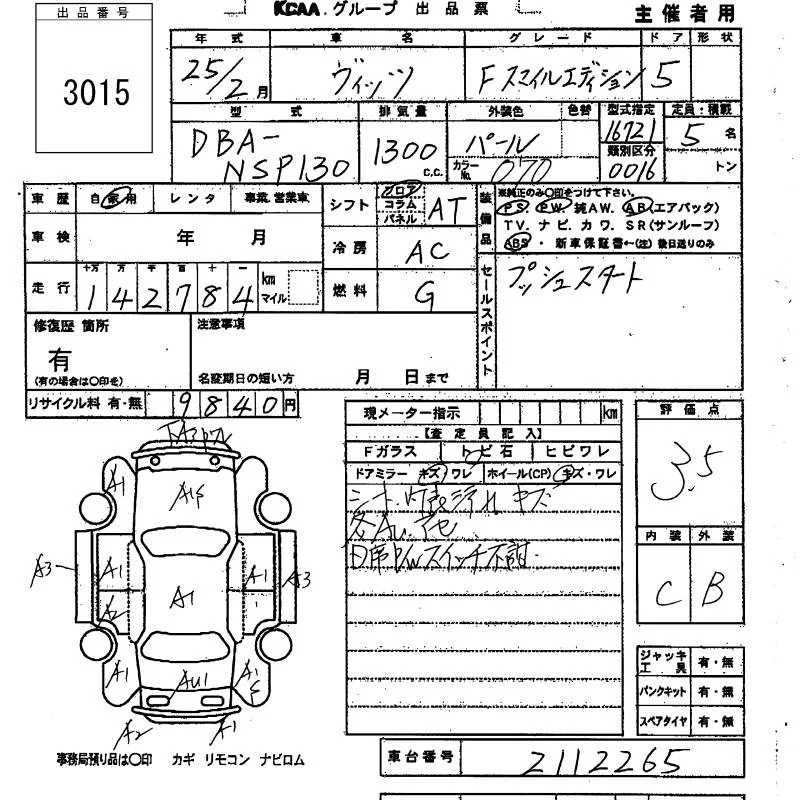 出品番号
3015
KCAA.グループ 出品票
主催者用
年式 車名 グレード ドア 形状
25/2月 ヴィッツ Fスマイルエディション 5
型式 排気量 外装色 色替 型式指定 定員・積載
DBA-NSP130 1300 c.c. パール 16721 5名
カラーNo. 070 類別区分 0016 トン
車歴 自家用 レンタ 事業、営業車
シフト フロア コラム パネル AT
装備品 ※純正のみ〇印をつけて下さい。
PS. PW. 純AW. AB(エアバック)
TV. ナビ. カワ. SR(サンルーフ)
ABS ・ 新車保証書←(注)後日送りのみ
車検 年 月
冷房 AC
走行 十万 万 千 百 十 一
142784 km マイル
燃料 G
セールスポイント プッシュスタート
修復歴 箇所
有
(有の場合は〇印を)
注意事項
名変期日の短い方 月 日まで
リサイクル料 有・無 9840円
現メーター指示 km
【査定員記入】
Fガラス トビ石 ヒビワレ
ドアミラー キズ・ワレ ホイール(CP) キズ・ワレ
シート、内張汚れ キズ
スイッチ不
評価点
3.5
内装 外装
C B
A1
A1
A3 A1 A1 A3
A2 A1
A1 AU1 A1
A2 A1
ジャッキ工具 有・無
パンクキット 有・無
スペアタイヤ 有・無
事務局預り品は〇印 カギ リモコン ナビロム
車台番号 2112265